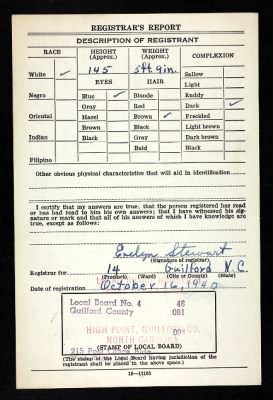 REGISTRAR'S REPORT
DESCRIPTION OF REGISTRANT
RACE HEIGHT (Approx.) WEIGHT (Approx.) COMPLEXION
White ✓ 145 5ft 9in. Sallow
EYES HAIR Light
Negro Blue ✓ Blonde Ruddy
Gray Red Dark ✓
Oriental Hazel Brown ✓ Freckled
Brown Black Light brown
Indian Black Gray Dark brown
Bald Black
Filipino
Other obvious physical characteristics that will aid in identification
I certify that my answers are true; that the person registered has read or has had read to him his own answers; that I have witnessed his signature or mark and that all of his answers of which I have knowledge are true, except as follows:
Evelyn Stewart
(Signature of registrar)
Registrar for 14 Guilford N.C.
(Precinct) (Ward) (City or County) (State)
Date October 16, 1940
Local Board No. 4 48
Guilford County 081
HIGH POINT, GUILFORD CO.
NORTH CAROLINA
(STAMP OF LOCAL BOARD)
(The stamp of the Local Board having jurisdiction of the registrant shall be placed in the above space.)
16—17105